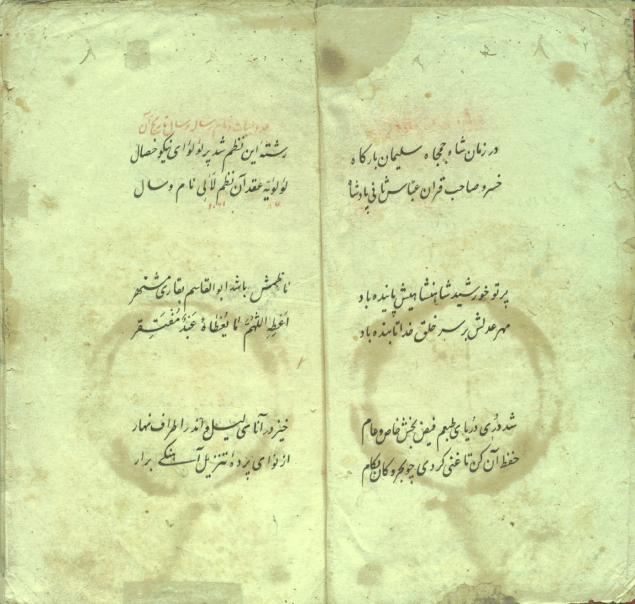 در زمان شاه جمجاه سلیمان بارگاه
خسرو صاحب قران عباس ثانی پادشا
پرتو خورشید شاهنشاهیش پاینده باد
مهر عدلش بر سر خلق خدا تابنده باد
شد دری دریای طبعم فیض بخش خاص و عام
حفظ آن کن تا غنی گردی چو بحر و کان بکام
رشته این نظم شد پر لؤلؤای نیکو خصال
لؤلؤیه عقد آن نظم لآلی نام و سال
ناظمش باشد ابوالقاسم بقاری مشتهر
اَعْطِهِ اللّهُمَّ مَا یُعْطَاهُ عَبْدٌ مُفْتَقِر
خیز در آنای لیل و اندر اطراف نهار
از نوای پردهٔ تنزیل آهنگی برار